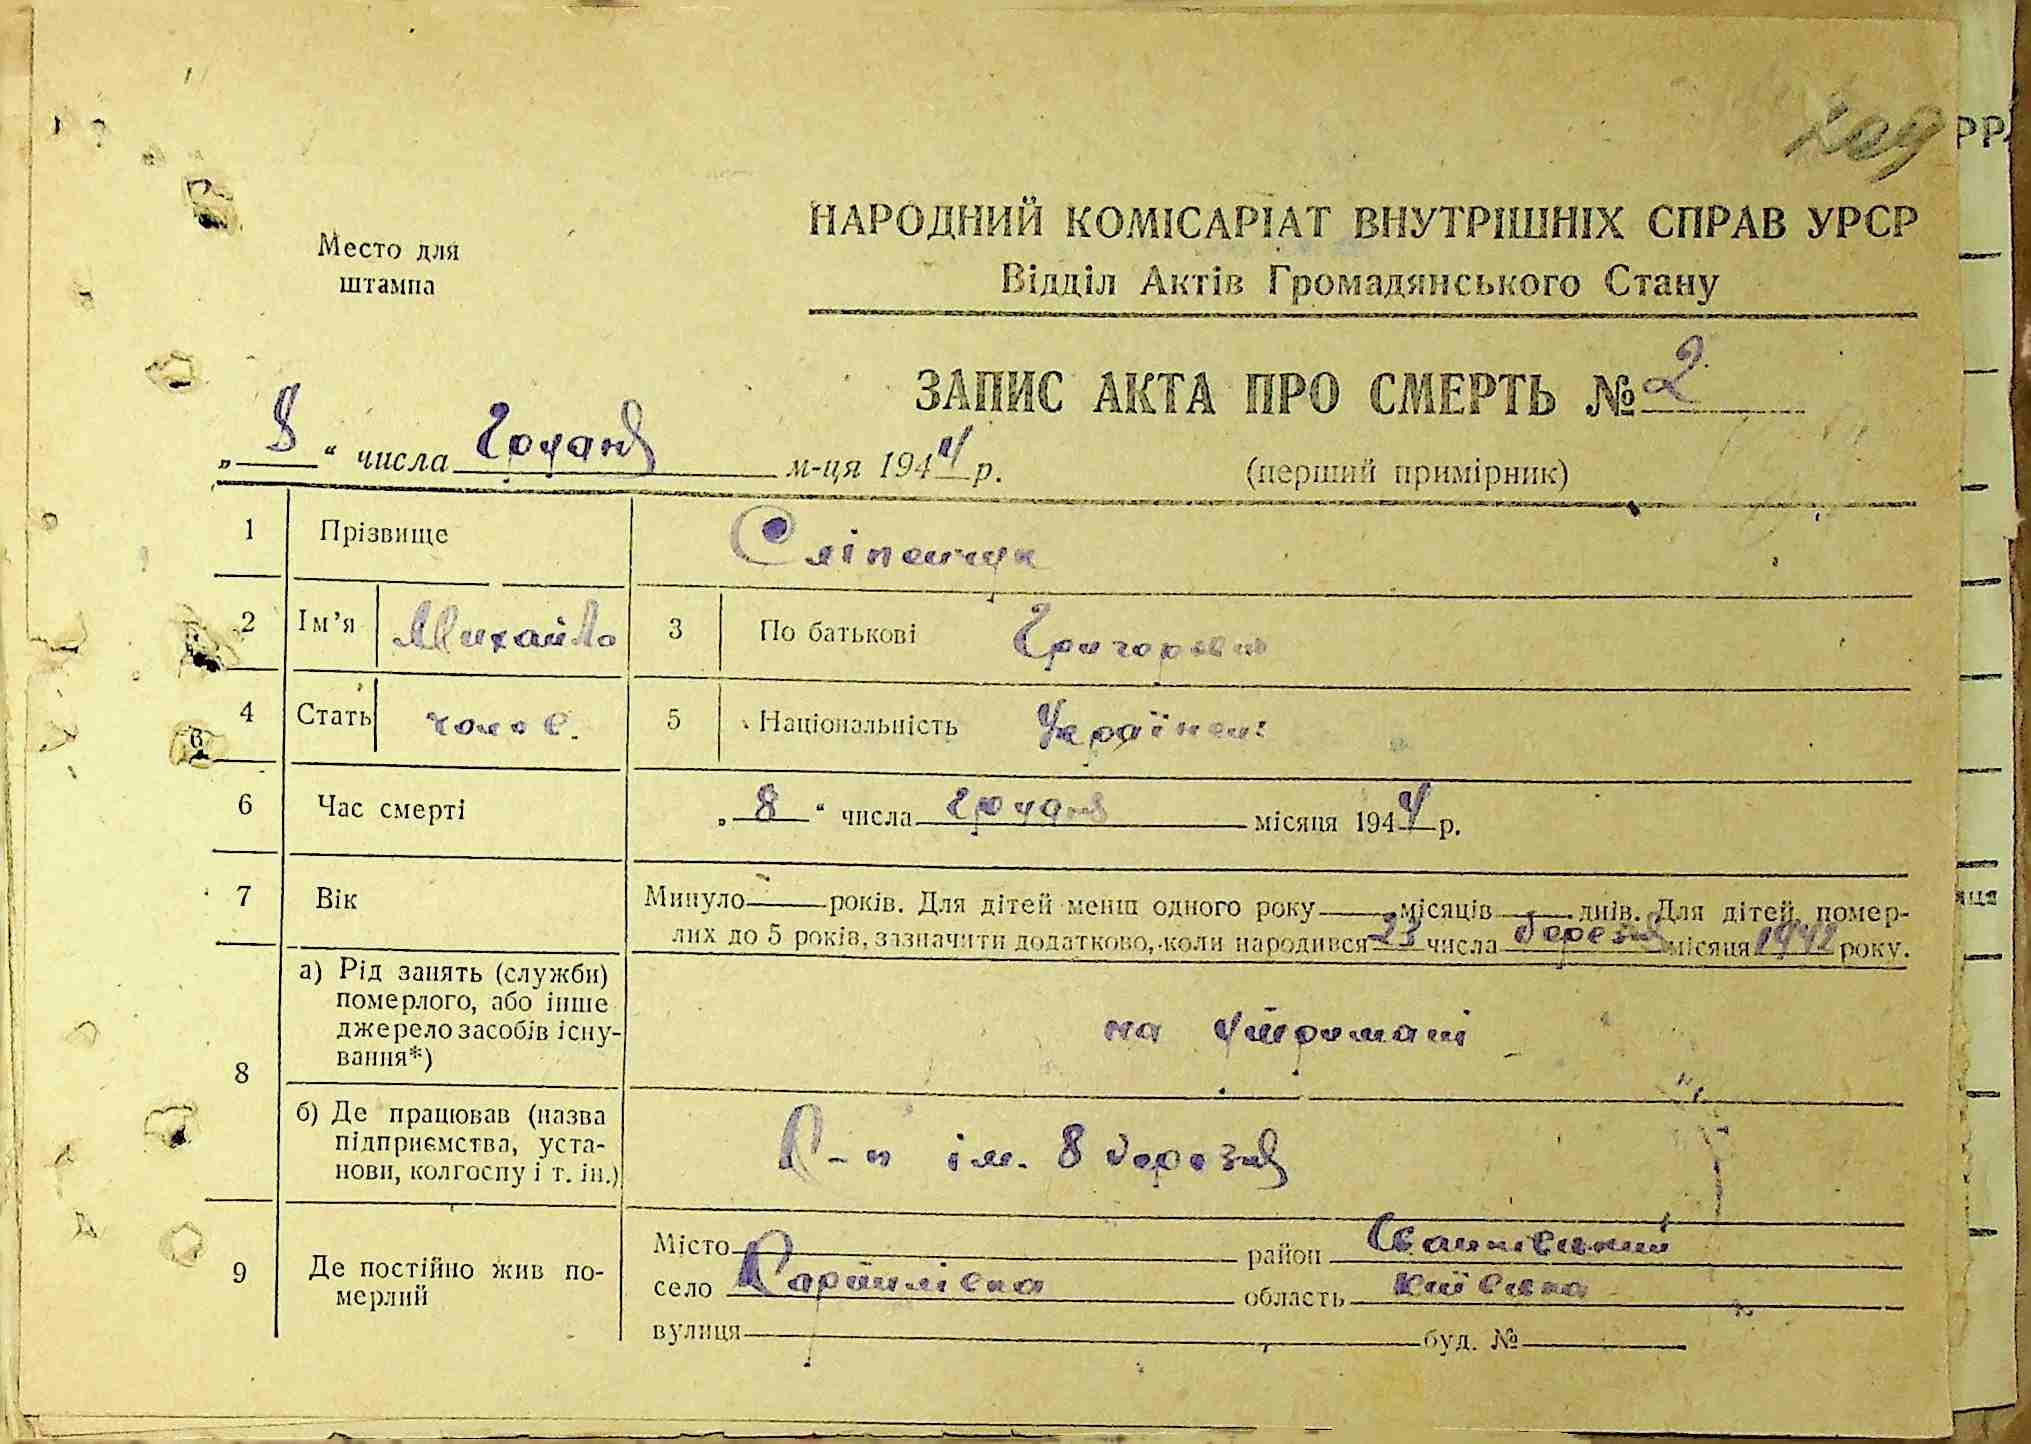 209
Место для
штампа
НАРОДНИЙ КОМІСАРІАТ ВНУТРІШНІХ СПРАВ УРСР
Відділ Актів Громадянського Стану
ЗАПИС АКТА ПРО СМЕРТЬ № 2
„ 8 “ числа грудня м-ця 1944 р.
(перший примірник)
1 Прізвище Сліпенчук
2 Ім’я Михайло 3 По батькові Григорович
4 Стать чолов. 5 Національність Українець
6 Час смерті „ 8 “ числа грудня місяця 1944 р.
7 Вік Минуло — років. Для дітей менш одного року — місяців — днів. Для дітей, помер-
лих до 5 років, зазначити додатково, коли народився 23 числа березня місяця 1942 року.
8 а) Рід занять (служби)
померлого, або інше
джерело засобів існу-
вання*)
на утримані
б) Де працював (назва
підприємства, уста-
нови, колгоспу і т. ін.)
К-п ім. 8 березня
9 Де постійно жив по-
мерлий
Місто район Іванківський
село область Київська
вулиця буд. №